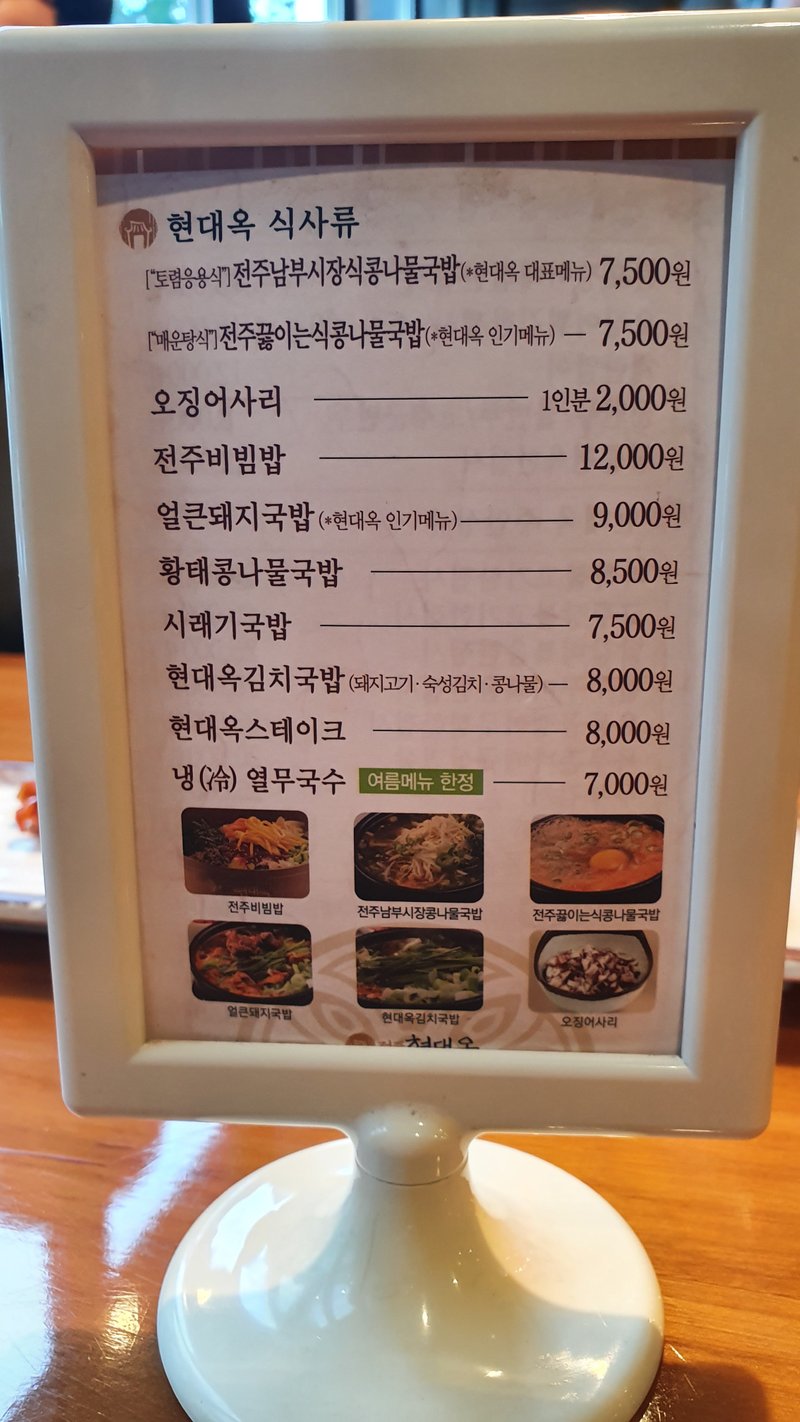 현대옥 식사류
["토렴응용식"]전주남부시장식콩나물국밥(*현대옥 대표메뉴) 7,500원
["매운탕식"]전주끓이는식콩나물국밥(*현대옥 인기메뉴) — 7,500원
오징어사리 1인분 2,000원
전주비빔밥 12,000원
얼큰돼지국밥(*현대옥 인기메뉴) 9,000원
황태콩나물국밥 8,500원
시래기국밥 7,500원
현대옥김치국밥(돼지고기·숙성김치·콩나물) — 8,000원
현대옥스테이크 8,000원
냉(冷) 열무국수 여름메뉴 한정 7,000원
전주비빔밥 전주남부시장콩나물국밥 전주끓이는식콩나물국밥
얼큰돼지국밥 현대옥김치국밥 오징어사리
현대옥